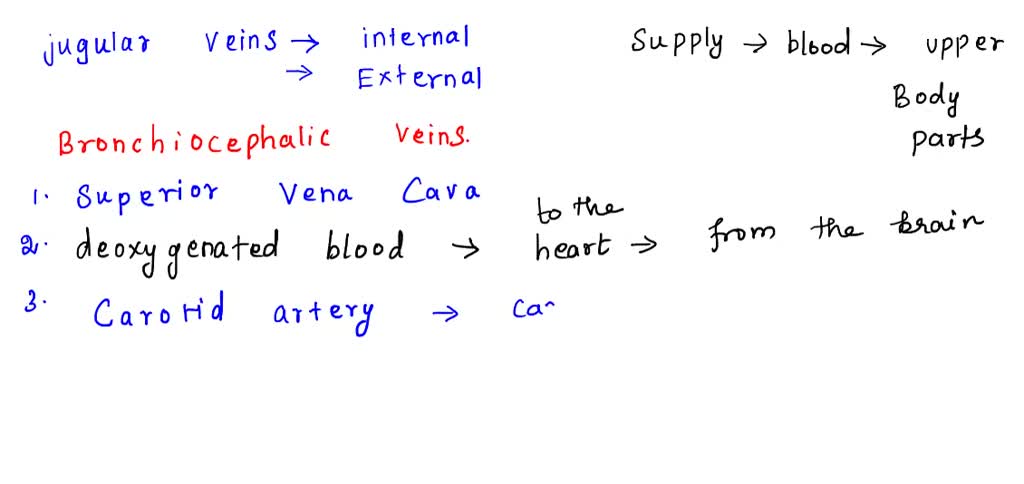 jugular veins → internal
→ External
Supply → blood → upper
Body
parts
Bronchiocephalic veins.
1. Superior Vena Cava
2. deoxygenated blood → to the heart → from the brain
3. Carotid artery → ca